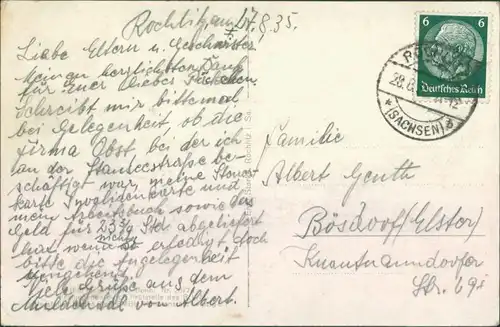 Rochlitz, am 27.8.35.
Liebe Eltern u. Geschwister.
Meinen herzlichsten Dank
für euer liebes Päckchen
Schreibt mir bitte mal
bei Gelegenheit, ob die
Firma Obst bei der ich
an der straße be-
schäftigt war, meine Steuer-
karte Invalidenkarte und
mein Arbeitsbuch sowie das
Geld für Std abgeliefert
hat, wenn nicht erledigt doch
bitte die Angelegenheit
umgehend.
Viele Grüße aus dem
Muldental von Albert.
6 6
Deutsches Reich
28.8.
(SACHSEN)
Familie
Albert Genth
Bösdorf/Elster
Knautnaundorfer
Str.